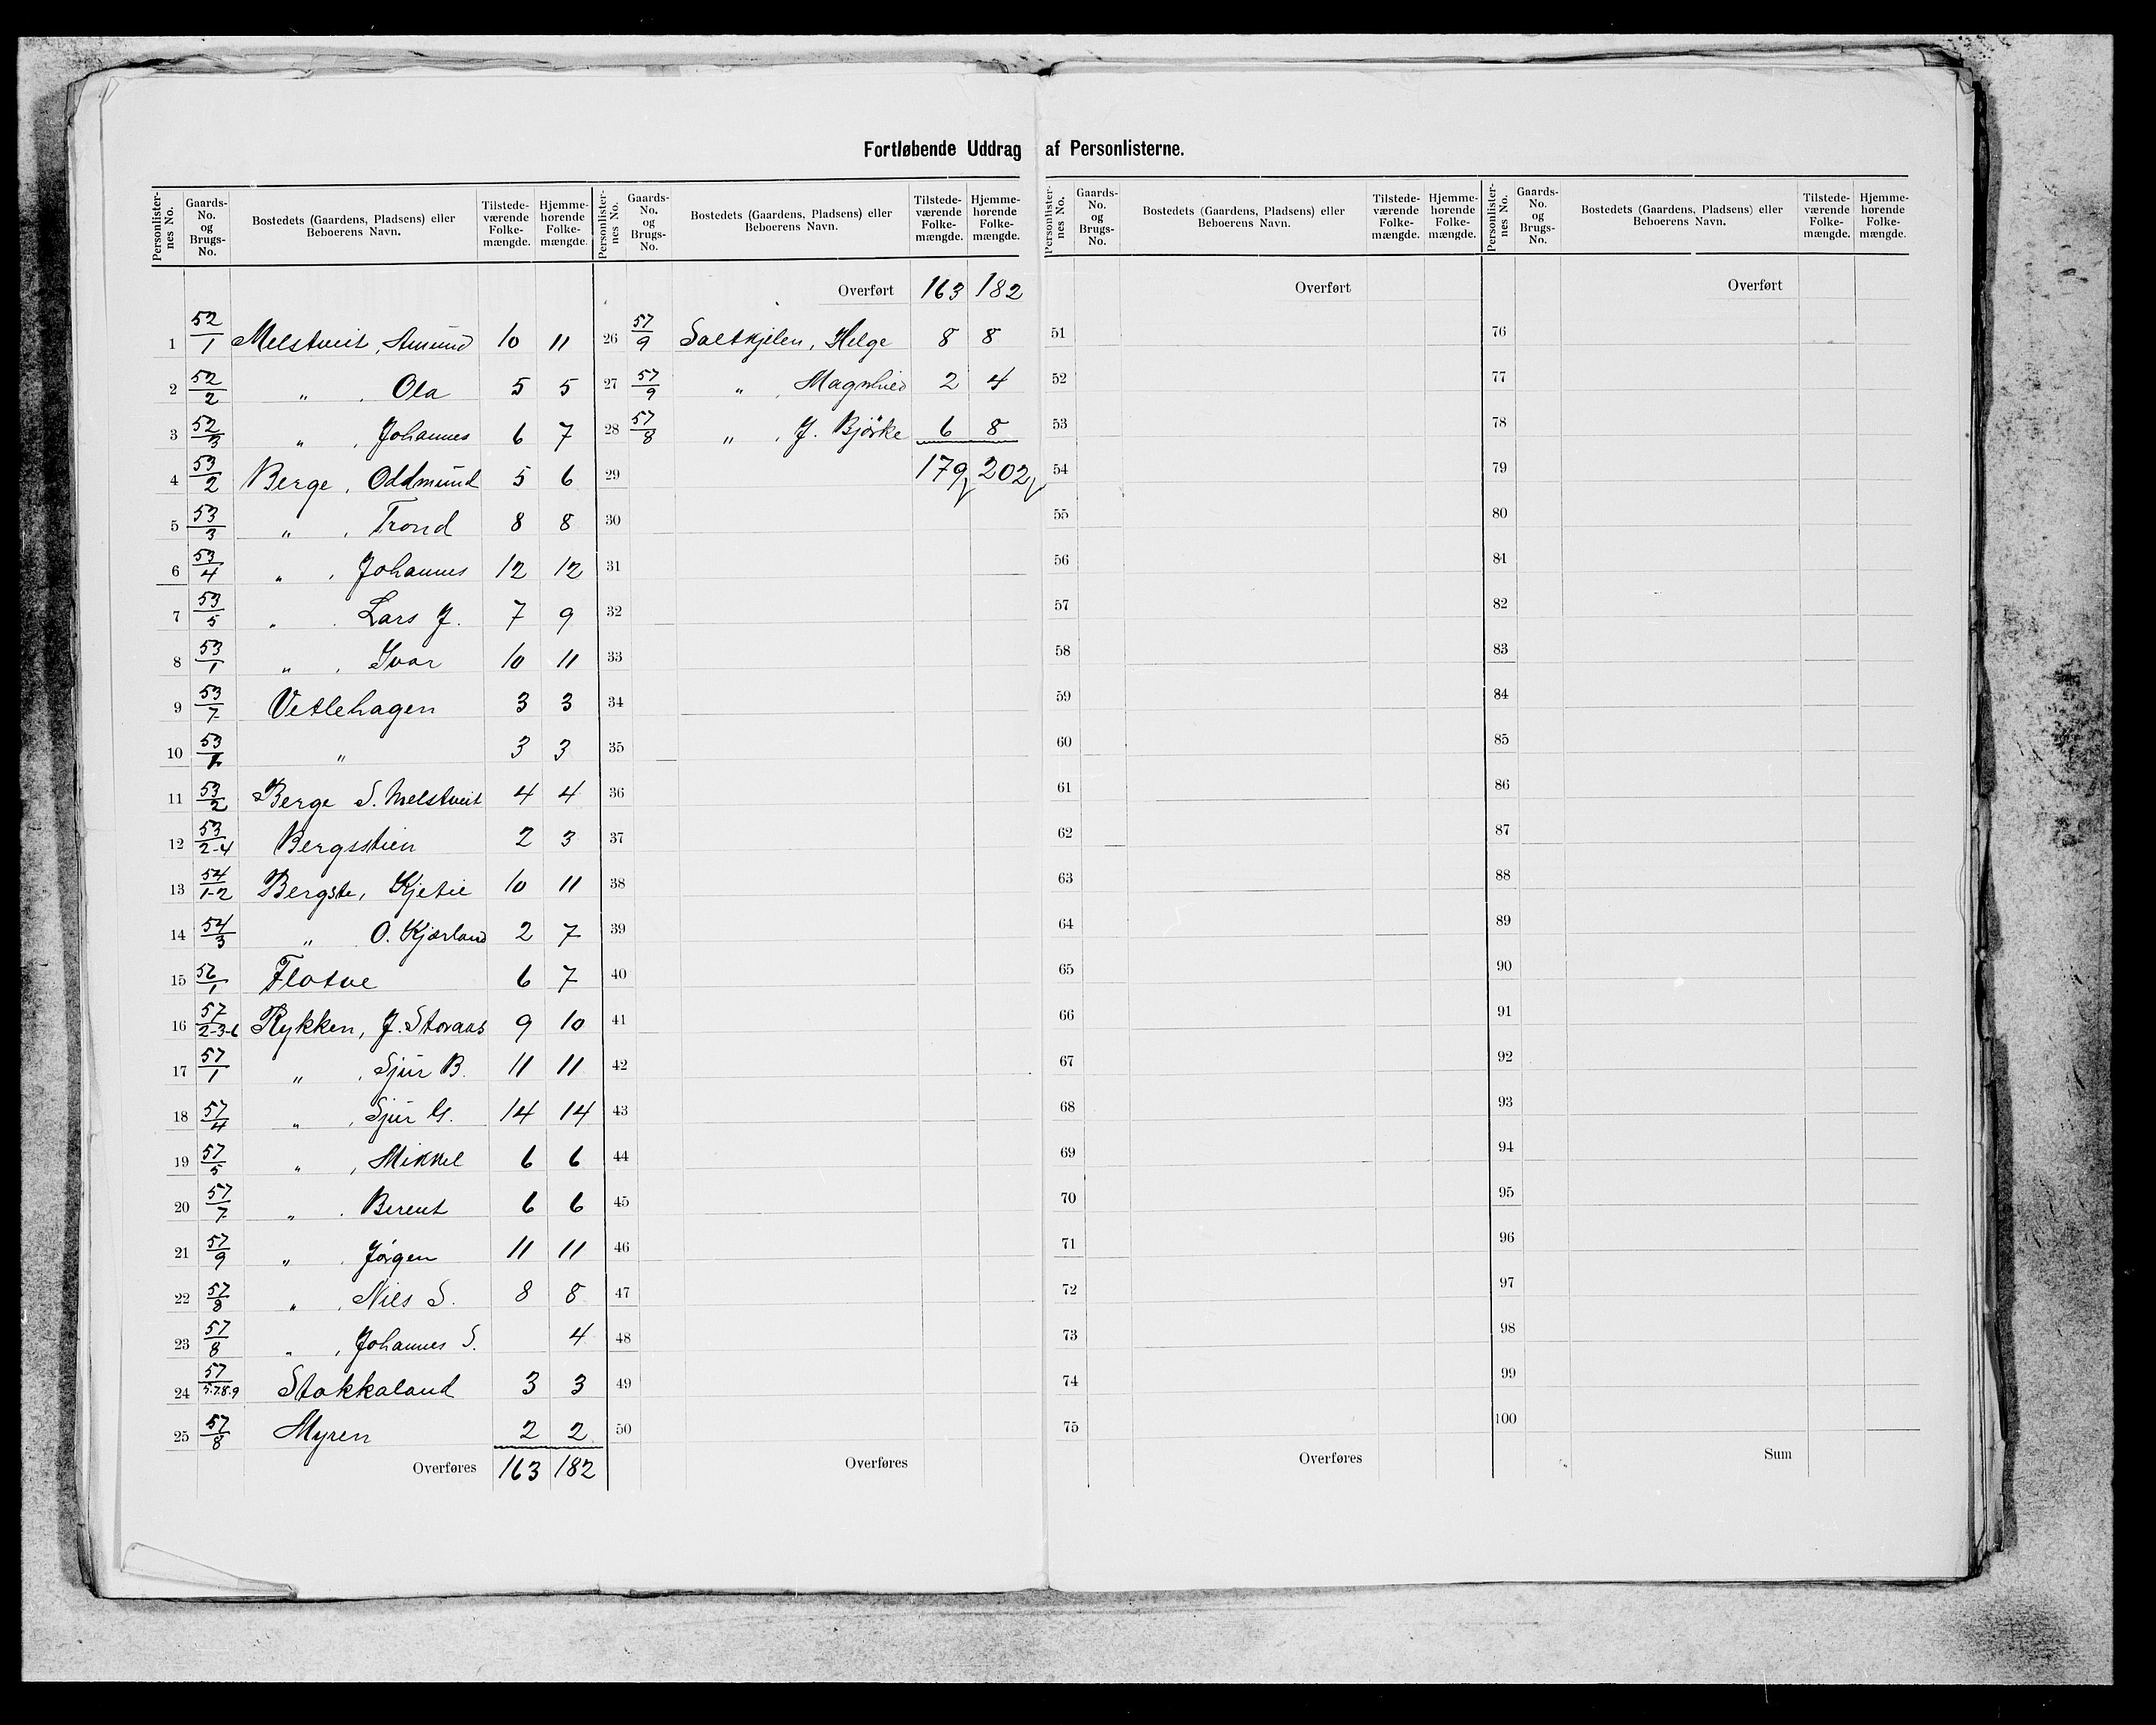 Fortløbende Uddrag af Personlisterne.
Personlister-nes No. | Gaards-No. og Brugs-No. | Bostedets (Gaardens, Pladsens) eller Beboerens Navn. | Tilstede-værende Folke-mængde. | Hjemme-hørende Folke-mængde.
1 52/1 Melstveit, Amund 10 11
2 52/2 " , Ola 5 5
3 52/3 " , Johannes 6 7
4 53/2 Berge, Oddmund 5 6
5 53/3 " , Trond 8 8
6 53/4 " , Johannes 12 12
7 53/5 " , Lars J. 7 9
8 53/1 " , Ivar 10 11
9 53/7 Vetlehagen 3 3
10 53/ " 3 3
11 53/2 Berge S. Melstveit 4 4
12 53/2-4 Bergsstien 2 3
13 54/1-2 Bergste, Kjetil 10 11
14 54/3 " O. Kjærland 2 7
15 56/1 Flotve 6 7
16 57/2-3-6 Rykken, J. Storaas 9 10
17 57/1 " , Sjur B. 11 11
18 57/4 " , Sjur G. 14 14
19 57/5 " , Mikkel 6 6
20 57/7 " , Berent 6 6
21 57/9 " , Jørgen 11 11
22 57/8 " , Nils S. 8 8
23 57/8 " , Johannes S. 4
24 57/5.7.8.9 Stokkaland 3 3
25 57/8 Myren 2 2
Overføres 163 182
Personlister-nes No. | Gaards-No. og Brugs-No. | Bostedets (Gaardens, Pladsens) eller Beboerens Navn. | Tilstede-værende Folke-mængde. | Hjemme-hørende Folke-mængde.
Overført 163 182
26 57/9 Saltkjelen, Helge 8 8
27 57/9 " , Magnhild 2 4
28 57/8 " , J. Bjørke 6 8
29 179 202
30
31
32
33
34
35
36
37
38
39
40
41
42
43
44
45
46
47
48
49
50
Overføres
Personlister-nes No. | Gaards-No. og Brugs-No. | Bostedets (Gaardens, Pladsens) eller Beboerens Navn. | Tilstede-værende Folke-mængde. | Hjemme-hørende Folke-mængde.
Overført
51
52
53
54
55
56
57
58
59
60
61
62
63
64
65
66
67
68
69
70
71
72
73
74
75
Overføres
Personlister-nes No. | Gaards-No. og Brugs-No. | Bostedets (Gaardens, Pladsens) eller Beboerens Navn. | Tilstede-værende Folke-mængde. | Hjemme-hørende Folke-mængde.
Overført
76
77
78
79
80
81
82
83
84
85
86
87
88
89
90
91
92
93
94
95
96
97
98
99
100
Sum